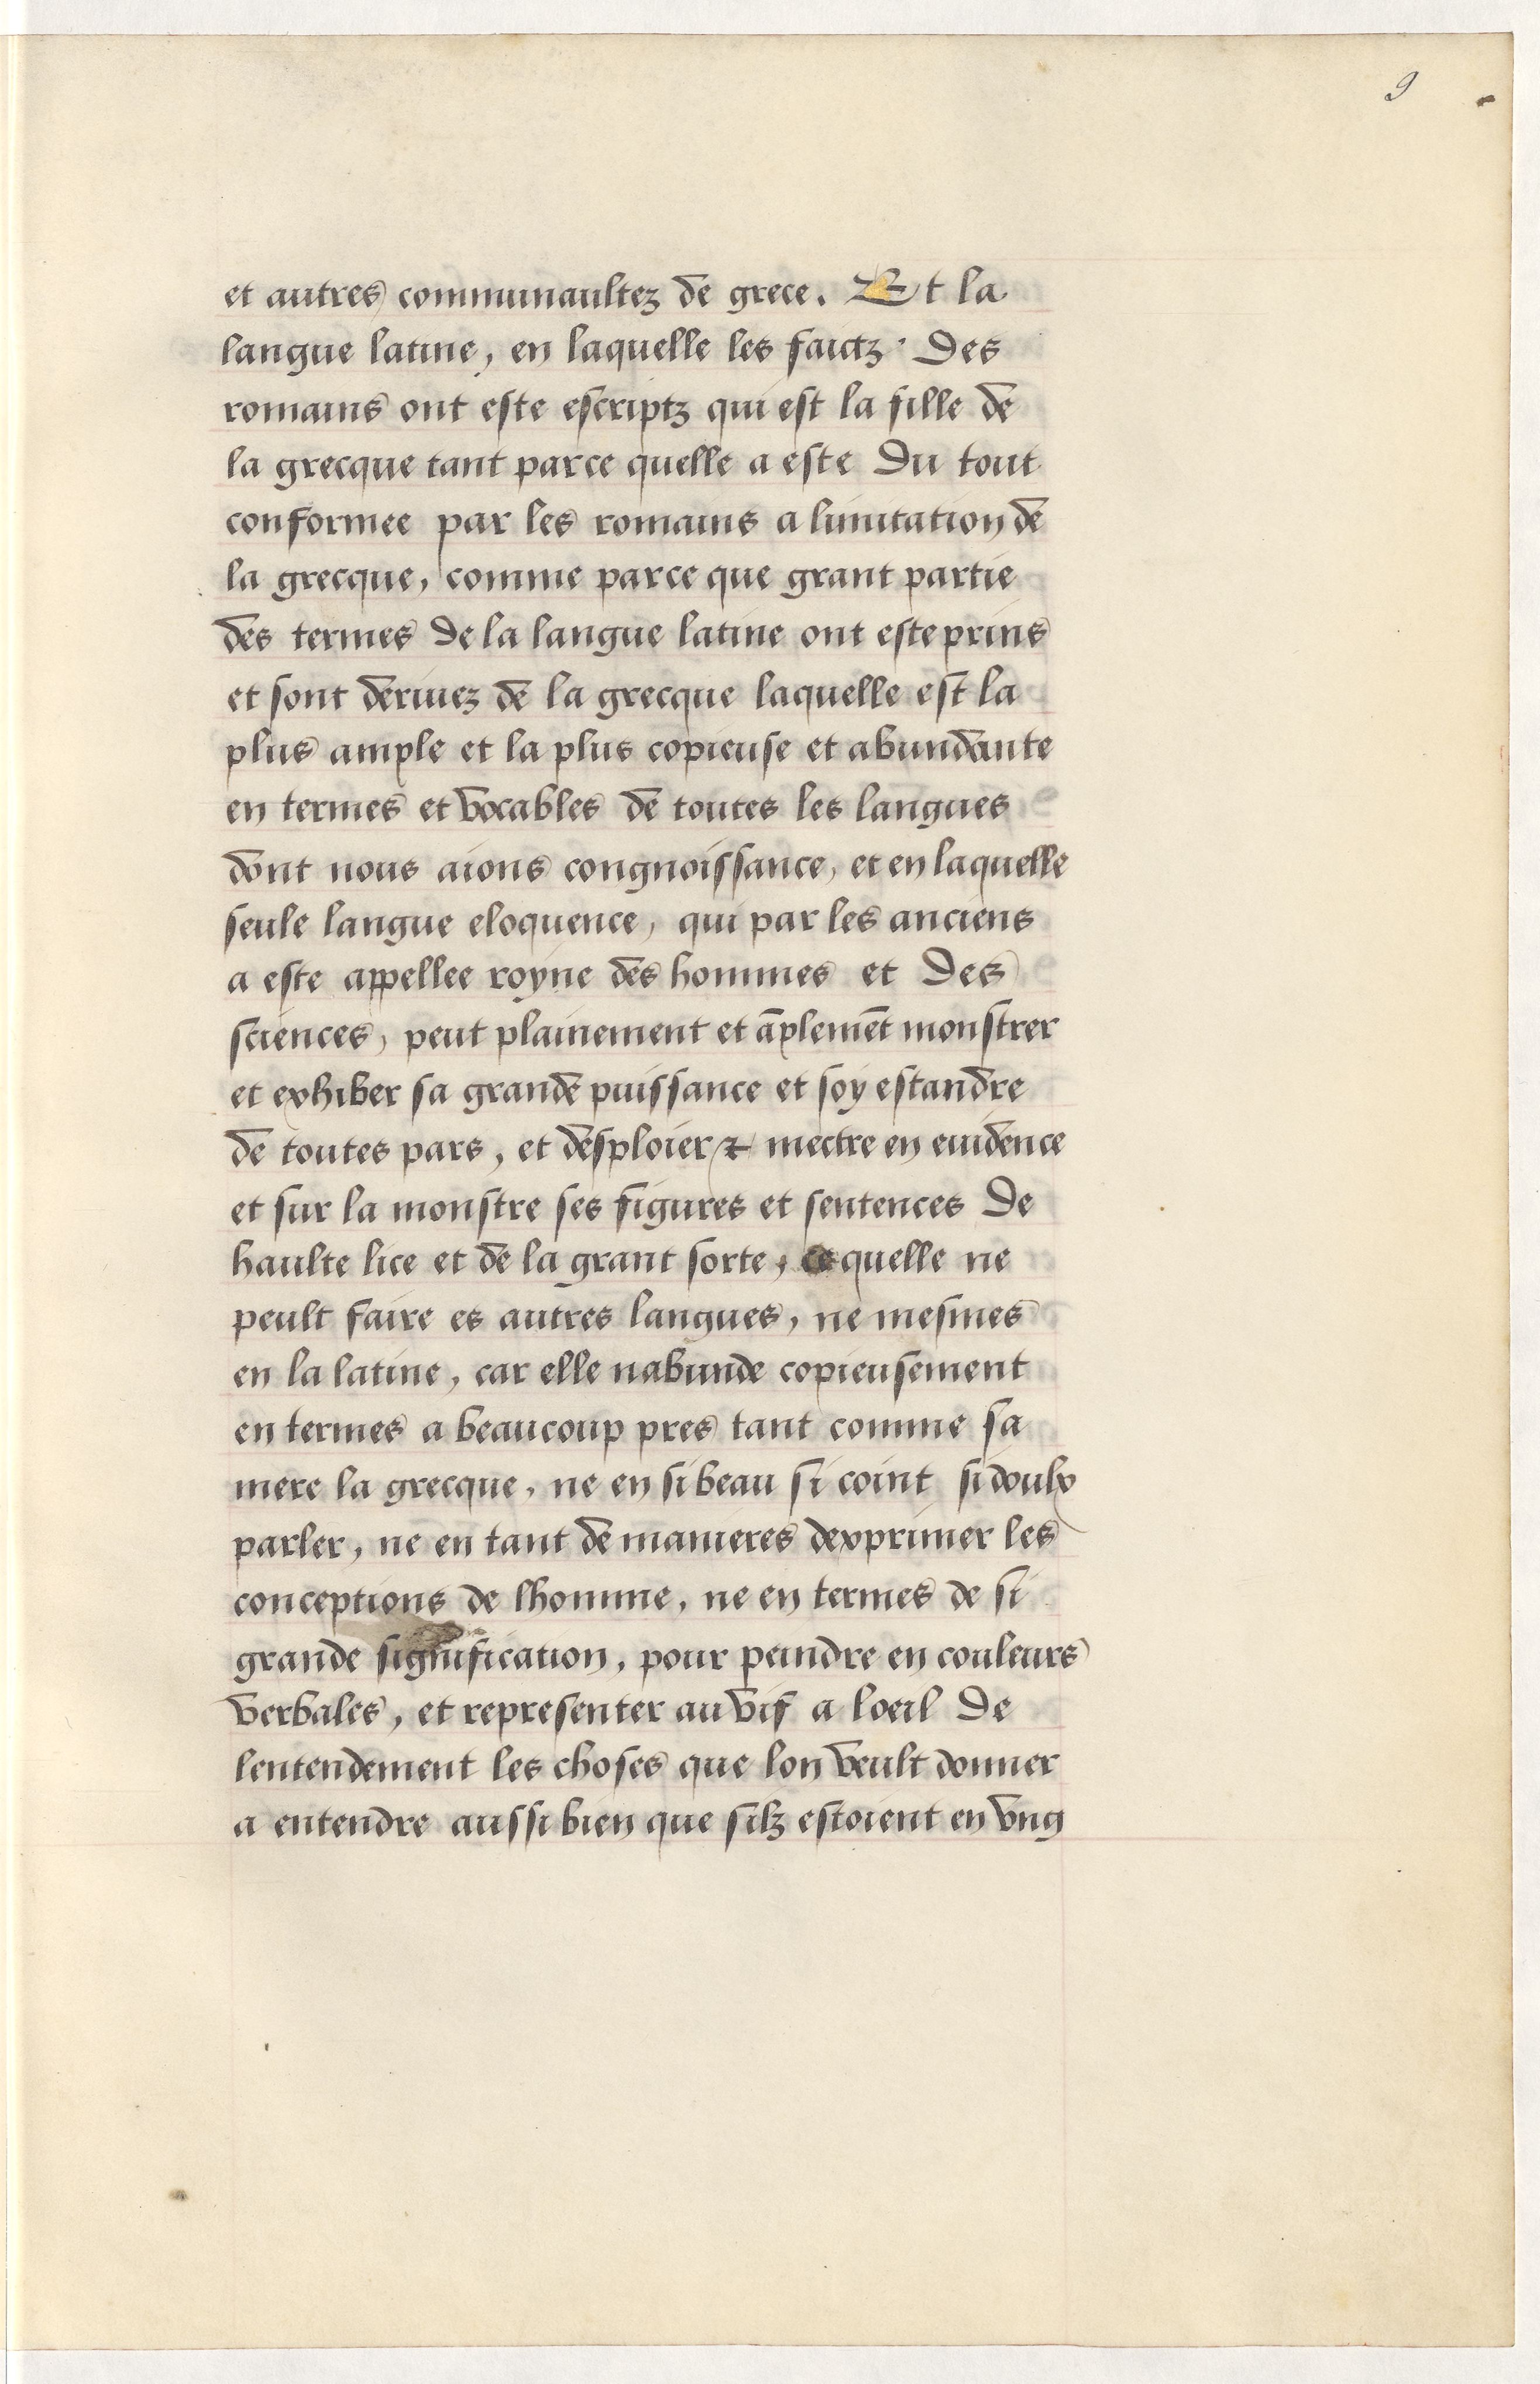 9
et autres communaultez de grece. Et la
langue latine, en laquelle les faictz des
romains ont este escriptz qui est la fille de
la grecque tant parce quelle a este du tout
conformee par les romains a limitation de
la grecque, comme parce que grant partie
des termes de la langue latine ont este prins
et sont deriuez de la grecque laquelle est la
plus ample et la plus copieuse et abundante
en termes et vocables de toutes les langues
dont nous aions congnoissance, et en laquelle
seule langue eloquence, qui par les anciens
a este appellee royne des hommes et des
sciences, peut plainement et āplemēt monstrer
et exhiber sa grande puissance et soy estandre
de toutes pars, et desploier & mectre en euidence
et sur la monstre ses figures et sentences de
haulte lice et de la grant sorte, ce quelle ne
peult faire es autres langues, ne mesmes
en la latine, car elle nabunde copieusement
en termes a beaucoup pres tant comme sa
mere la grecque, ne en si beau si coint si doulx
parler, ne en tant de manieres dexprimer les
conceptions de lhomme, ne en termes de si
grande signification, pour peindre en couleurs
verbales, et representer au vif a loeil de
lentendement les choses que lon veult donner
a entendre aussi bien que silz estoient en vng